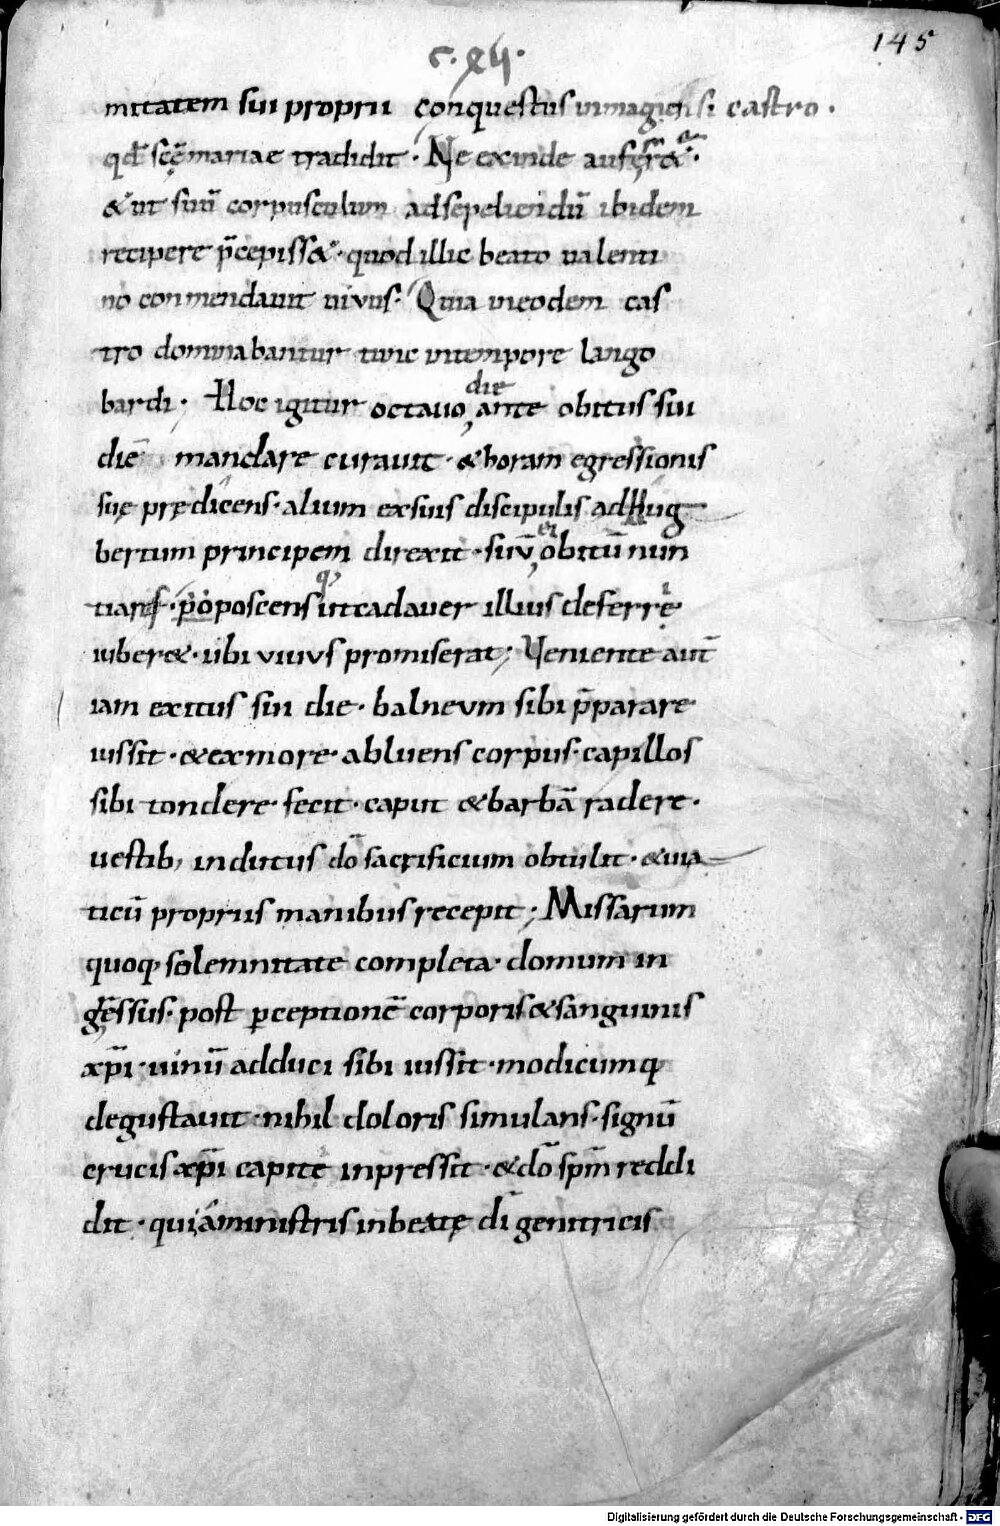 145
c. xli.
mitatem sui proprii conquestus inmagiensi castro.
qđ scę mariae tradidit. Ne exinde auferret&.
& ut suū corpusculum adsepeliendū ibidem
recipere p̄cepiss&. quod illic beato ualenti
no conmendauit uivus. Quia ineodem cas
tro dominabantur tunc intempore lango
bardi; Hoc igitur octauo die ante obitus sui
diē mandare curauit. & horam egressionis
suę prędicens. alium exsuis discipulis adHug
bertum principem direxit. suū ei obitū nun
tians. poposcens q; ut cadauer illius deferri
iuber&. ubi vivus promiserat; Veniente aut̄
iam exitus sui die. balneum sibi p̄parare
iussit. & exmore. abluens corpus. capillos
sibi tondere fecit. caput & barbā radere.
uestib; indutus dō sacrificium obtulit. & uia
ticū propriis manibus recepit; Missarum
quoq; solemnitate completa. domum in
gressus. post perceptionē corporis & sanguinis
xp̄i. uinū adduci sibi iussit. modicumq;
degustauit. nihil doloris simulans. signū
crucis xp̄i capite inpressit. & dō spm̄ reddi
dit. qui a ministris inbeatę dī genitricis
Digitalisierung gefördert durch die Deutsche Forschungsgemeinschaft - DFG